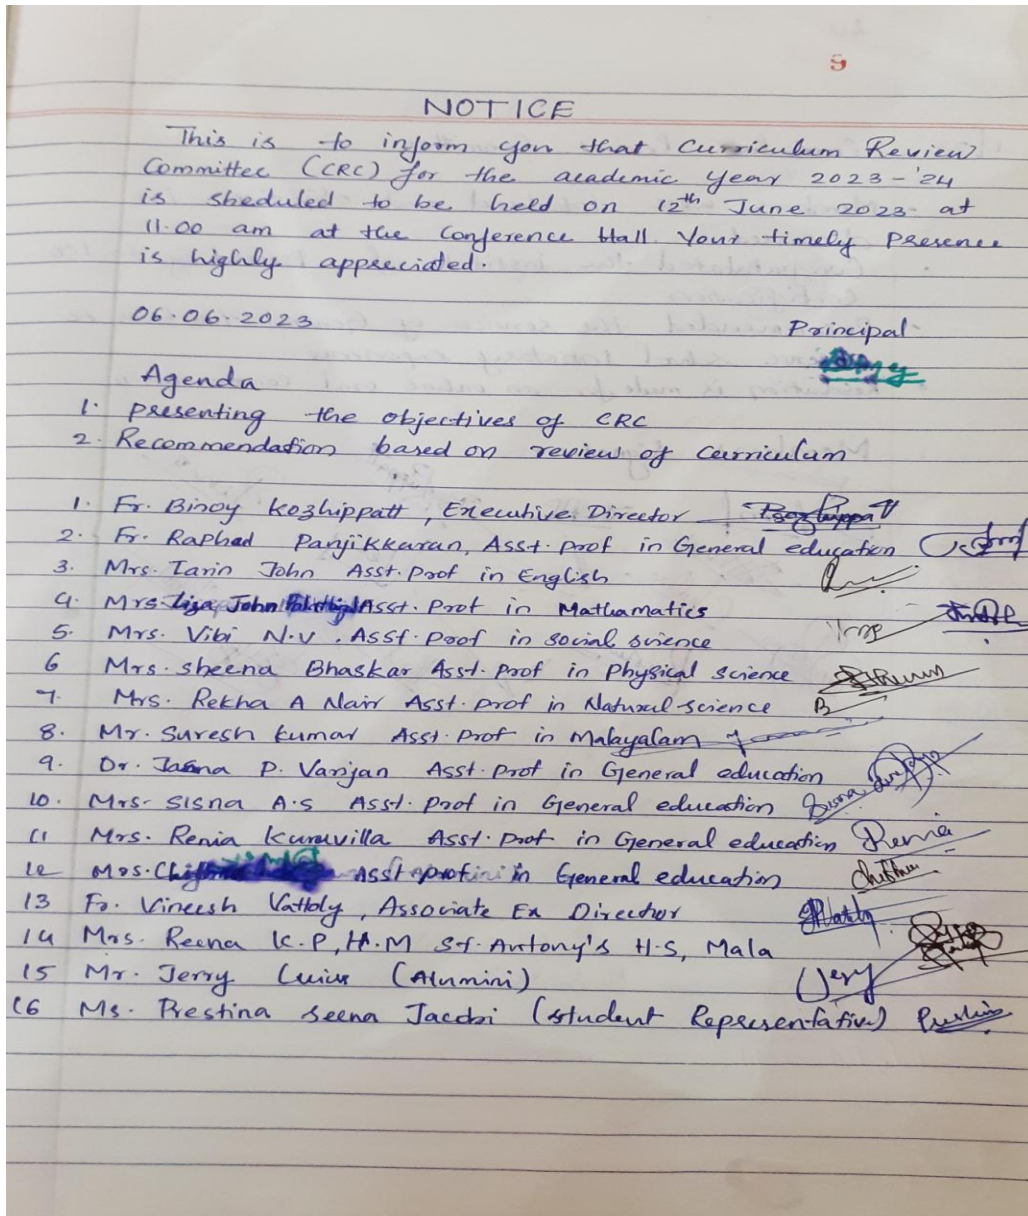 9
NOTICE
This is to inform you that Curriculum Review
Committee (CRC) for the academic year 2023-'24
is sheduled to be held on 12th June 2023 at
11.00 am at the Conference Hall. Your timely presence
is highly appreciated.
06.06.2023
Principal
Agenda
1. Presenting the objectives of CRC
2. Recommendation based on review of curriculum
1. Fr. Binoy Kozhippatt, Executive Director
2. Fr. Raphael Panjikkaran, Asst. prof in General education
3. Mrs. Tarin John Asst. Prof in English
4. Mrs. Liza John Asst. Prof in Mathamatics
5. Mrs. Vibi N.V. Asst. Prof in social science
6 Mrs. Sheena Bhaskar Asst. Prof in Physical science
7. Mrs. Rekha A Nair Asst. prof in Natural science
8. Mr. Suresh Kumar Asst. Prof in Malayalam
9. Dr. P. Varijan Asst. Prof in General education
10. Mrs. Sisna A.S Asst. prof in General education
11 Mrs. Renia Kuruvilla Asst. Prof in General education Renia
12 Mrs. Asst prof in General education Chithra
13 Fr. Vineesh Vattoly, Associate Ex Director
14 Mrs. Reena K.P, H.M St. Antony's H.S, Mala
15 Mr. Jerry Luius (Alumini) Jery
16 Ms. Prestina Seena Jacobi (student Representative)